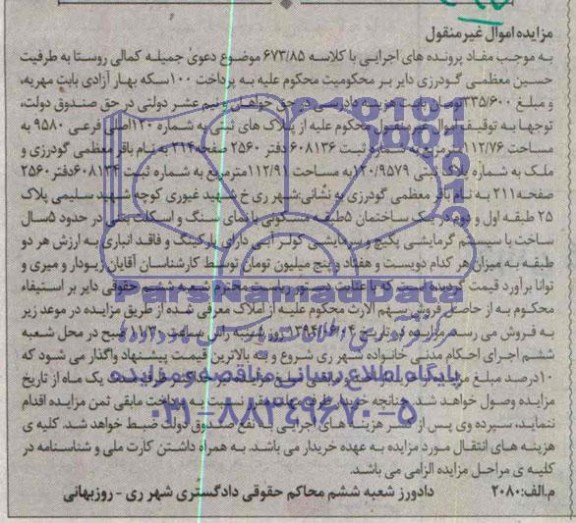 مزایده اموال غیر منقول
به موجب مفاد پرونده های اجرایی با کلاسه ۶۷۳/۸۵ موضوع دعوی جمیله کمالی روستا به طرفیت
حسین معظمی گودرزی دایر بر محکومیت محکوم علیه به پرداخت ۱۰۰سکه بهار آزادی بابت مهریه،
و مبلغ ۲۳۵/۶۰۰تومان بابت هزینه دادرسی در حق خواهان و نیم عشر دولتی در حق صندوق دولت،
توجها به توقیف اموال غیرمنقول محکوم علیه از پلاک های ثبتی به شماره ۱۲۰اصلی فرعی ۹۵۸۰ به
مساحت ۱۱۲/۷۶مترمربع به شماره ثبت ۶۰۸۱۳۶ دفتر ۲۵۶۰ صفحه۲۱۴ به نام باقر معظمی گودرزی و
ملک به شماره پلاک ثبتی ۱۲۰/۹۵۷۹به مساحت ۱۱۲/۹۱مترمربع به شماره ثبت ۶۰۸۱۳۴دفتر ۲۵۶۰
صفحه۲۱۱ به نام باقر معظمی گودرزی به نشانی:شهر ری خ شهید غیوری کوچه شهید سلیمی پلاک
۲۵ طبقه اول و دوم در یک ساختمان ۵طبقه مسکونی با نمای سنگ و اسکلت بتنی در حدود ۵سال
ساخت با سیستم گرمایشی پکیج و سرمایشی کولر آبی دارای پارکینگ و فاقد انباری به ارزش هر دو
طبقه به میزان هر کدام دویست و هفتاد و پنج میلیون تومان توسط کارشناسان آقایان زیودار و میری و
توانا برآورد قیمت گردیده است که با عنایت دستور ریاست محترم شعبه ششم حقوقی دایر بر استیفاء
محکوم به از حاصل فروش سهم الارث محکوم علیه از املاک معرفی شده از طریق مزایده در موعد زیر
به فروش می رسد مزایده در تاریخ ۱۳۹۴/ /۰۴ روز شنبه راس ساعت ۱۱/۳۰ صبح در محل شعبه
ششم اجرای احکام مدنی خانواده شهر ری شروع و به بالاترین قیمت پیشنهاد واگذار می شود که
۱۰درصد مبلغ مزایده مبلغ مزایده ظرف مدت یک ماه از تاریخ
مزایده وصول خواهد شد. چنانچه خریدار ظرف مهلت مقرر نسبت به پرداخت مابقی ثمن مزایده اقدام
ننماید، سپرده وی پس از کسر هزینه های اجرایی به نفع صندوق دولت ضبط خواهد شد. کلیه ی
هزینه های انتقال مورد مزایده به عهده خریدار می باشد. به همراه داشتن کارت ملی و شناسنامه در
کلیه ی مراحل مزایده الزامی می باشد.
م.الف:۲۰۸۰ دادورز شعبه ششم محاکم حقوقی دادگستری شهر ری - روزبهانی
ParsNamadData
پایگاه اطلاع رسانی مناقصه و مزایده
۰۲۱-۸۸۳۴۹۶۷۰-۵